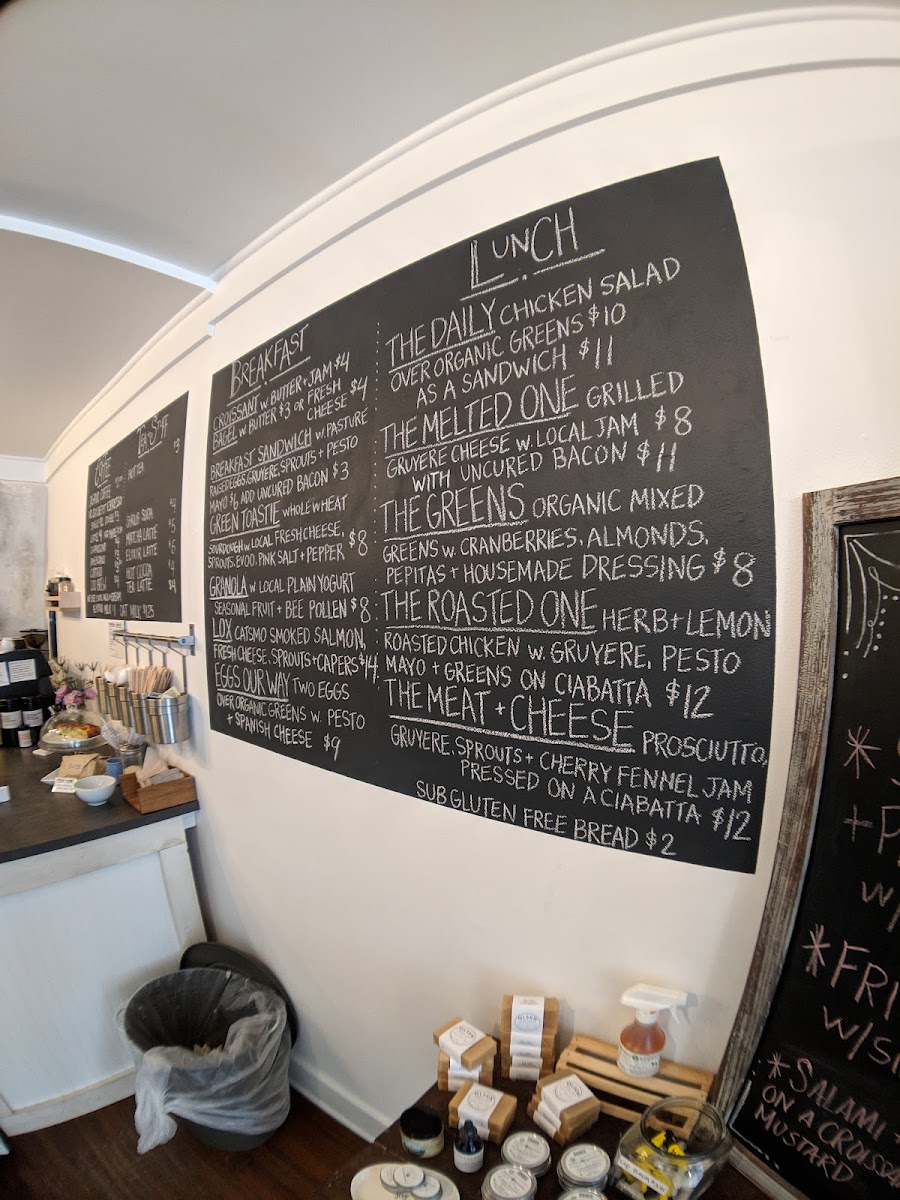 COFFEE
TEA & STUFF
$3
SHRUB SODA
MATCHA LATTE $5
ELIXIR LATTE
HOT COCOA $4
TEA LATTE $4
OAT MILK $1.25
BREAKFAST
CROISSANT w. BUTTER + JAM $4
BAGEL w. BUTTER $3 OR FRESH
CHEESE $4
BREAKFAST SANDWICH w. PASTURE
RAISED EGGS, GRUYERE, SPROUTS + PESTO
MAYO $6, ADD UNCURED BACON $3
GREEN TOASTIE WHOLE WHEAT
SOURDOUGH w. LOCAL FRESH CHEESE,
SPROUTS, EVOO, PINK SALT + PEPPER $8
GRANOLA w. LOCAL PLAIN YOGURT
SEASONAL FRUIT + BEE POLLEN $8
LOX CATSMO SMOKED SALMON,
FRESH CHEESE, SPROUTS + CAPERS $14
EGGS OUR WAY TWO EGGS
OVER ORGANIC GREENS w. PESTO
+ SPANISH CHEESE $9
LUNCH
THE DAILY CHICKEN SALAD
OVER ORGANIC GREENS $10
AS A SANDWICH $11
THE MELTED ONE GRILLED
GRUYERE CHEESE w. LOCAL JAM $8
WITH UNCURED BACON $11
THE GREENS ORGANIC MIXED
GREENS w. CRANBERRIES, ALMONDS,
PEPITAS + HOUSEMADE DRESSING $8
THE ROASTED ONE HERB + LEMON
ROASTED CHICKEN w. GRUYERE, PESTO
MAYO + GREENS ON CIABATTA $12
THE MEAT + CHEESE PROSCIUTTO,
GRUYERE, SPROUTS + CHERRY FENNEL JAM
PRESSED ON A CIABATTA $12
SUB GLUTEN FREE BREAD $2
*
+ P
w/
*FRI
w/S
*SALAMI +
ON A CROISSA
MUSTARD